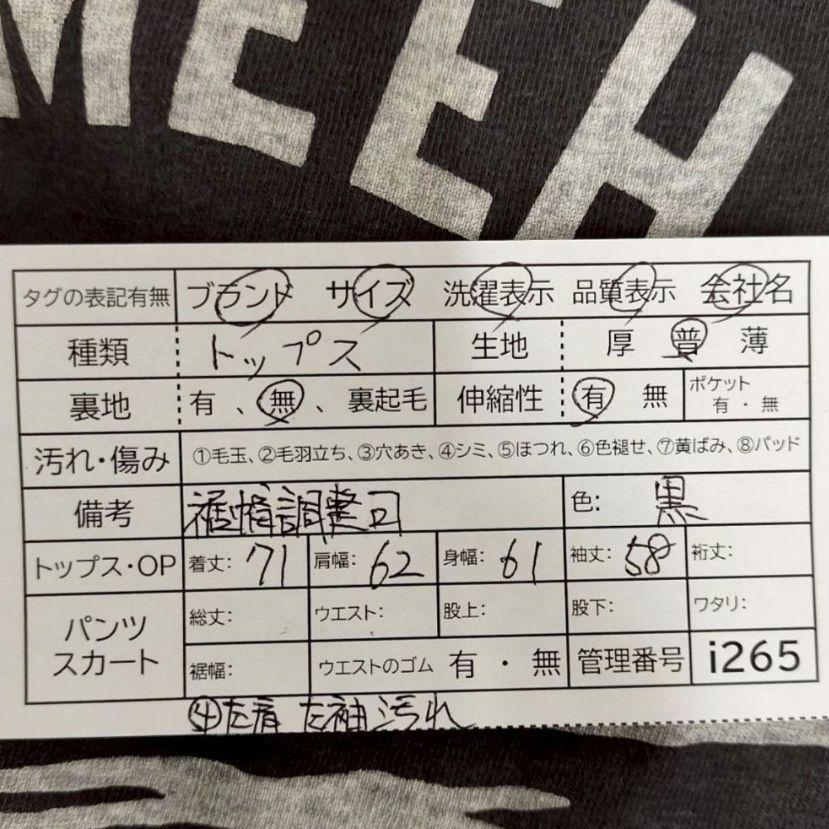 MEEH
タグの表記有無 ブランド サイズ 洗濯表示 品質表示 会社名
種類 トップス 生地 厚 普 薄
裏地 有、無、裏起毛 伸縮性 有 無 ポケット 有・無
汚れ・傷み ①毛玉、②毛羽立ち、③穴あき、④シミ、⑤ほつれ、⑥色褪せ、⑦黄ばみ、⑧パッド
備考 裾幅調整可 色: 黒
トップス・OP 着丈: 71 肩幅: 62 身幅: 61 袖丈: 58 裄丈:
パンツ スカート 総丈: ウエスト: 股上: 股下: ワタリ:
裾幅: ウエストのゴム 有・無 管理番号 i265
④左肩 左袖 汚れ